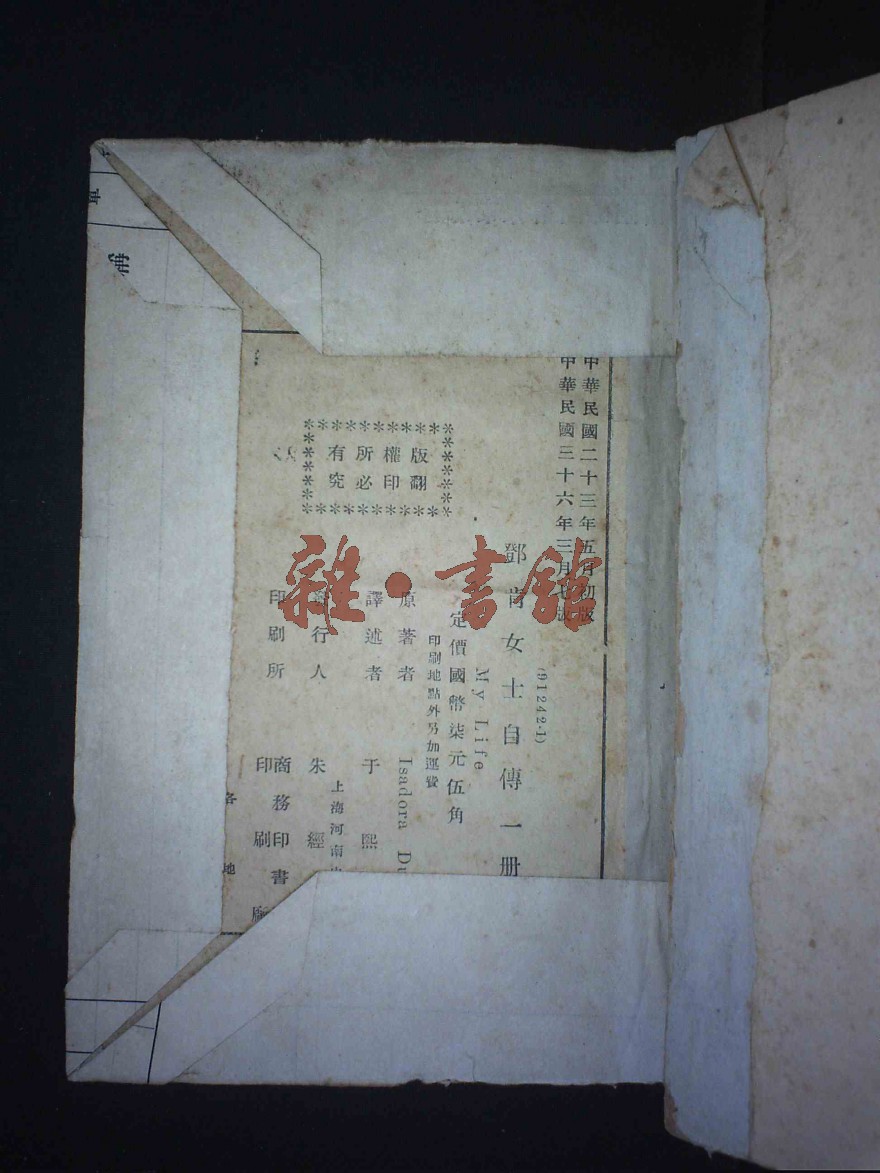 中華民國二十三年五月初版
中華民國三十六年三月七版
(91242·1)
鄧肯女士自傳一册
My Life
定價國幣柒元伍角
印刷地點外另加運費
原著者 Isadora
譯述者 于熙
版權所有
翻印必究
發行人 朱經
上海河南
印刷所 商務印書
印刷廠
各地
雜·書館